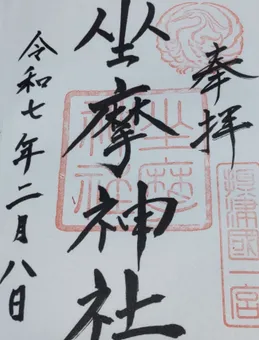 奉拝
摂津國一宮
坐摩神社
坐摩神社
令和七年二月八日